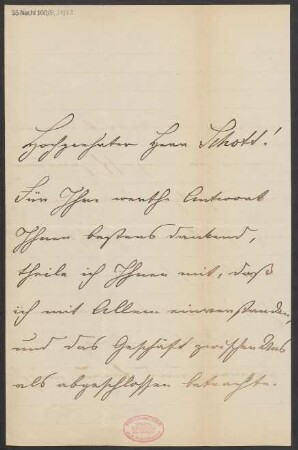 55 Nachl 100/B,
Hochgeehrter Herr Schott!
Für Ihre werthe Antwort
Ihnen bestens dankend,
theile ich Ihnen mit, daß
ich mit Allem einverstanden,
und das Geschäft zwischen Uns
als abgeschlossen betrachte.